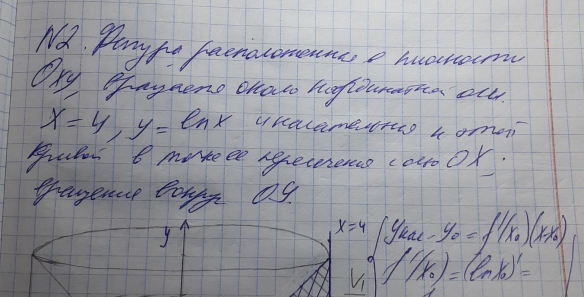 N2. Фигура, расположенная в плоскости
Oxy, вращается около координатной оси.
X=4, y=lnx и касательная к этой
кривой в точке ее пересечения с осью OX;
вращение вокруг OY.
y
x=4
Yкас - Y₀ = f'(x₀)(x-x₀)
f'(x₀) = (lnx₀)' =
V₁